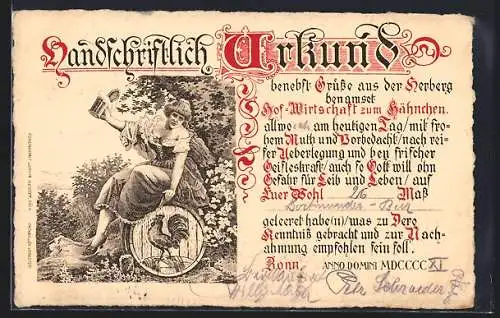 Handschriftlich Urkund
benebst Grüße aus der Herberg
benamset
Hof-Wirtschaft zum Hähnchen.
allwo ich am heutigen Tag / mit fro-
hem Muth und Vorbedacht / nach rei-
fer Ueberlegung und bey frischer
Geisteskraft / auch so Gott will ohn
Gefahr für Leib und Leben / auf
Euer Wohl Maß
Dortmunder-Bier
geleeret habe(n) / was zu Dero
Kenntniß gebracht und zur Nach-
ahmung empfohlen sein soll.
Bonn ANNO DOMINI MDCCCCXI
Peter Schroeder